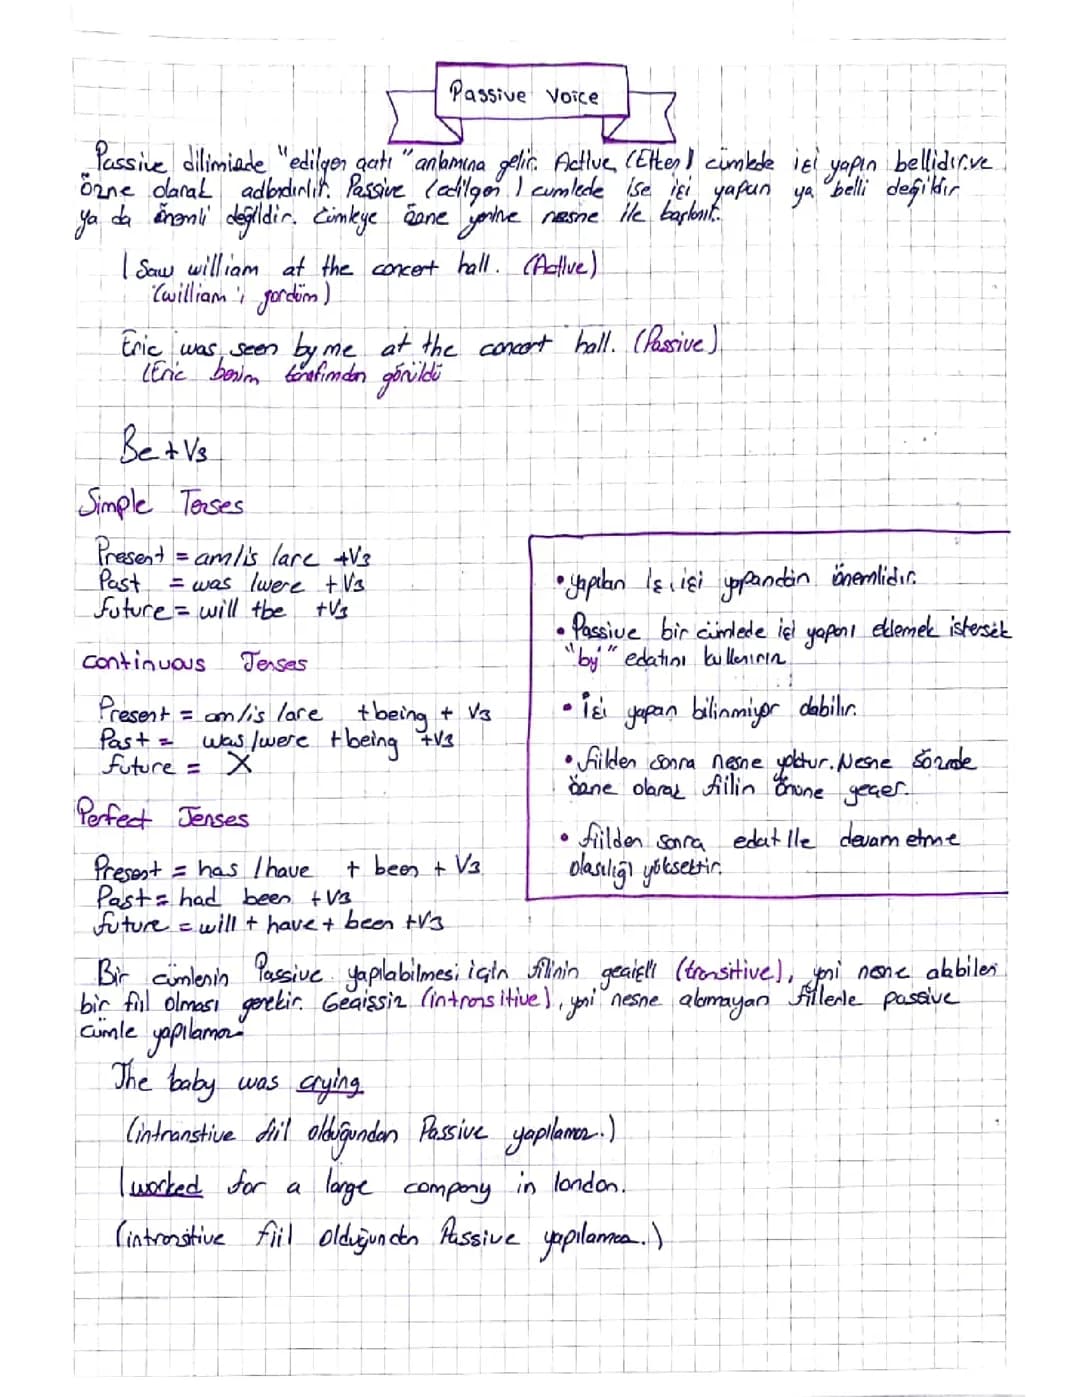 Passive Voice
Passive dilimizde "edilgen çatı" anlamına gelir. Active (Etken) cümlede işi yapın bellidir.ve
özne olarak adlandırılır. Passive (edilgen) cumlede ise işi yapan ya belli değildir
ya da önemli değildir. Cümleye özne yerine nesne ile başlanır.
I Saw william at the concert hall. (Active)
(william'ı gördüm)
Eric was seen by me at the concert hall. (Passive)
(Eric benim tarafımdan görüldü
Be + V3
Simple Tenses
Present = am/is /are +V3
Past = was /were +V3
future = will +be +V3
continuous Tenses
Present = am/is /are +being + V3
Past = was/were +being +V3
future = X
Perfect Tenses
Present = has /have + been + V3
Past = had been +V3
future = will + have + been +V3
• yapılan iş, işi yapandan önemlidir.
• Passive bir cümlede işi yapanı eklemek istersek
"by" edatını kullanırız
• İşi yapan bilinmiyor olabilir.
• fiilden sonra nesne yoktur. Nesne sözde
özne olarak fiilin önüne geçer.
• fiilden sonra edat ile devam etme
olasılığı yüksektir.
Bir cümlenin Passive yapılabilmesi için fiilinin geçişli (transitive), yani nesne alabilen
bir fiil olması gerekir. Geçişsiz (intransitive), yani nesne almayan fiillerle passive
cümle yapılamaz.
The baby was crying
(intranstive fiil olduğundan Passive yapılamaz.)
I worked for a large company in london.
(intransitive fiil olduğundan Passive yapılamaz.)